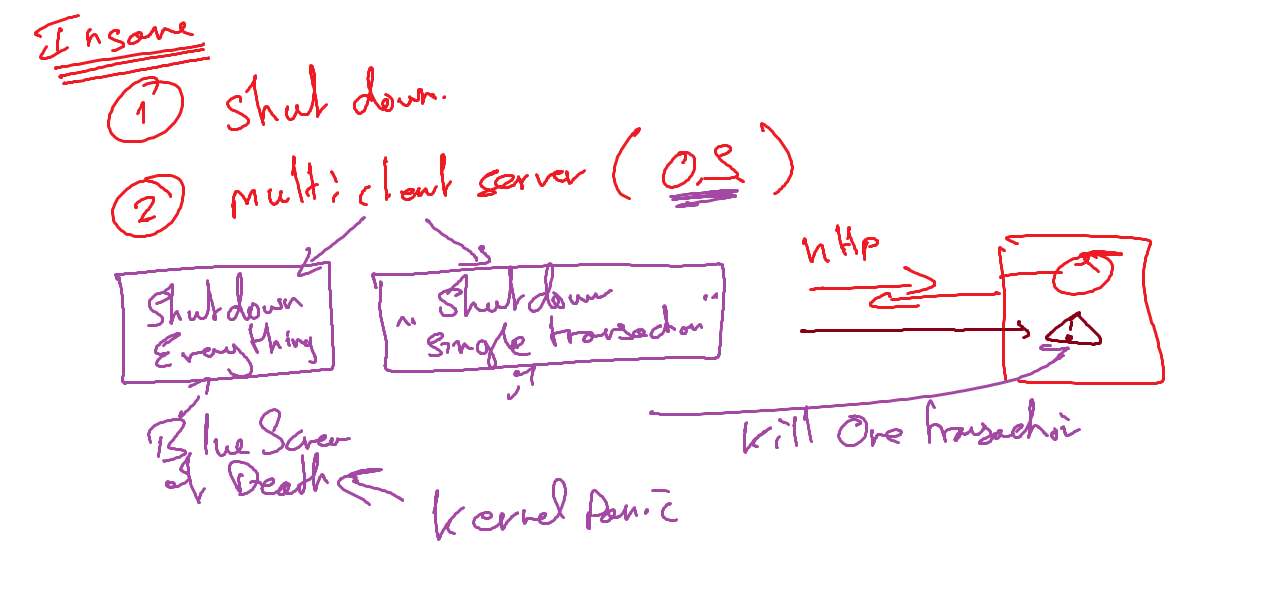 Insane
1 Shut down.
2 multiclient server (O.S)
Shutdown
Everything
" Shutdown
Single transaction "
Blue Screen
of Death
Kernel Panic
HHp
!
Kill One transaction